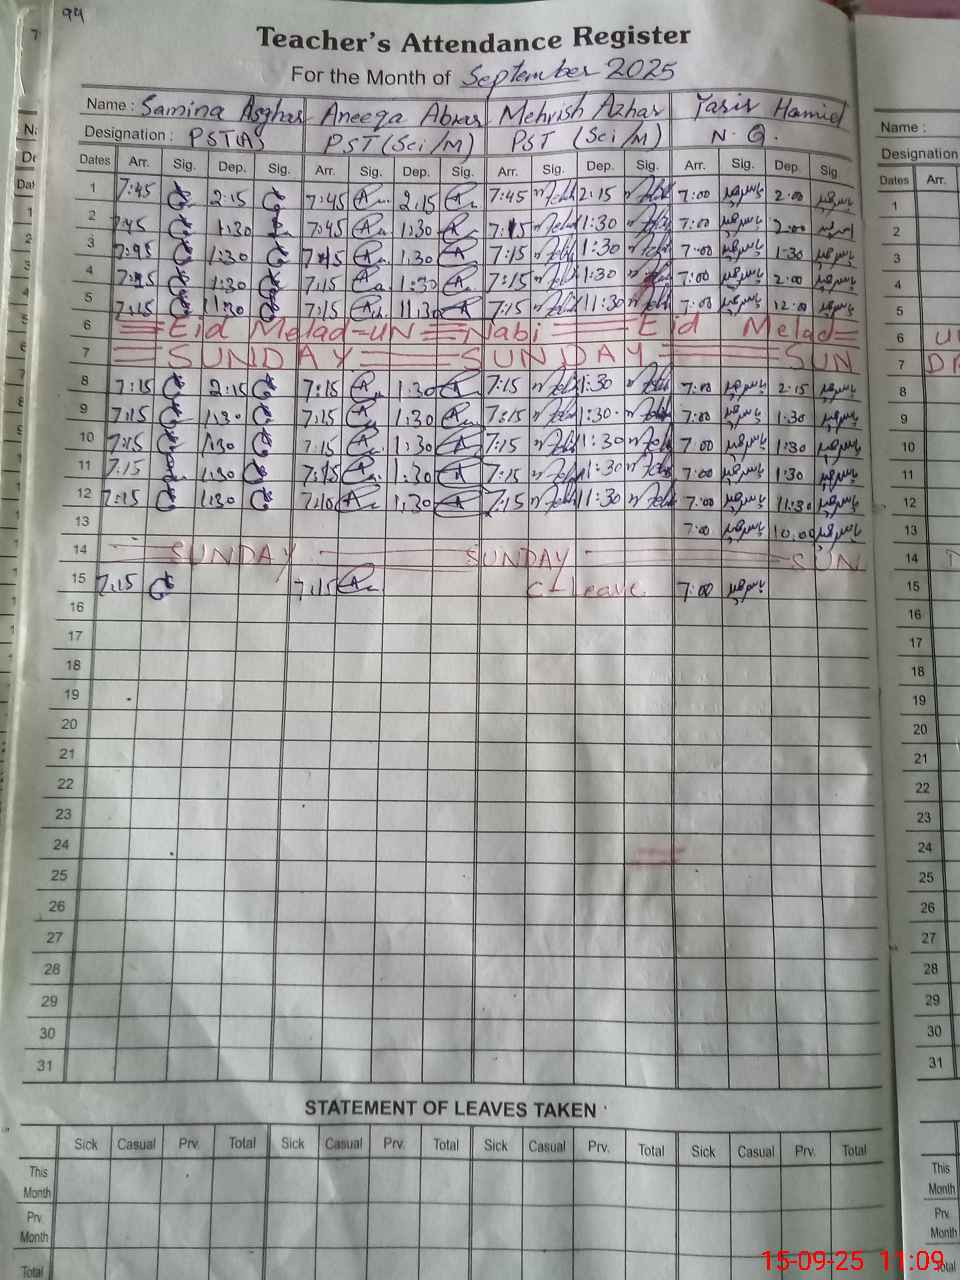 94
Teacher's Attendance Register
For the Month of September 2025
Name : Samina Asghar Aneeqa Abras Mehrish Azhar Yasir Hamid
Designation : PST(A) PST (Sci/M) PST (Sci/M) N.Q.
Dates Arr. Sig. Dep. Sig. Arr. Sig. Dep. Sig. Arr. Sig. Dep. Sig. Arr. Sig. Dep. Sig
1 7:45 2:15 7:45 2:15 7:45 2:15 7:00 یاسر 2:00 یاسر
2 7:45 1:30 7:45 1:30 7:15 1:30 7:00 یاسر 2:00 یاسر
3 1:30 7:15 1:30 7:15 1:30 7:00 یاسر 1:30 یاسر
4 7:15 1:30 7:15 1:30 7:15 1:30 7:00 یاسر 2:00 یاسر
5 7:15 11:30 7:15 11:30 7:15 11:30 7:00 یاسر 12:00 یاسر
6 Eid Melad-uN Nabi Eid Melad
7 SUNDAY SUNDAY SUN
8 7:15 2:15 7:15 1:30 7:15 1:30 7:00 یاسر 2:15 یاسر
9 7:15 1:30 7:15 1:30 7:15 1:30 7:00 یاسر 1:30 یاسر
10 7:15 1:30 7:15 1:30 7:15 1:30 7:00 یاسر 1:30 یاسر
11 7:15 1:30 7:15 1:30 7:15 1:30 7:00 یاسر 1:30 یاسر
12 7:15 1:30 7:10 1:30 7:15 11:30 7:00 یاسر 11:30 یاسر
13 7:00 یاسر 10:00 یاسر
14 SUNDAY SUNDAY SUN
15 7:15 7:15 C-leave 7:00 یاسر
16
17
18
19
20
21
22
23
24
25
26
27
28
29
30
31
STATEMENT OF LEAVES TAKEN
Sick Casual Prv. Total Sick Casual Prv. Total Sick Casual Prv. Total Sick Casual Prv. Total
This Month
Prv. Month
Total
Name :
Designation
Dates Arr.
1
2
3
4
5
6
7
8
9
10
11
12
13
14
15
16
17
18
19
20
21
22
23
24
25
26
27
28
29
30
31
This Month
Prv. Month
Total
15-09-25 11:09